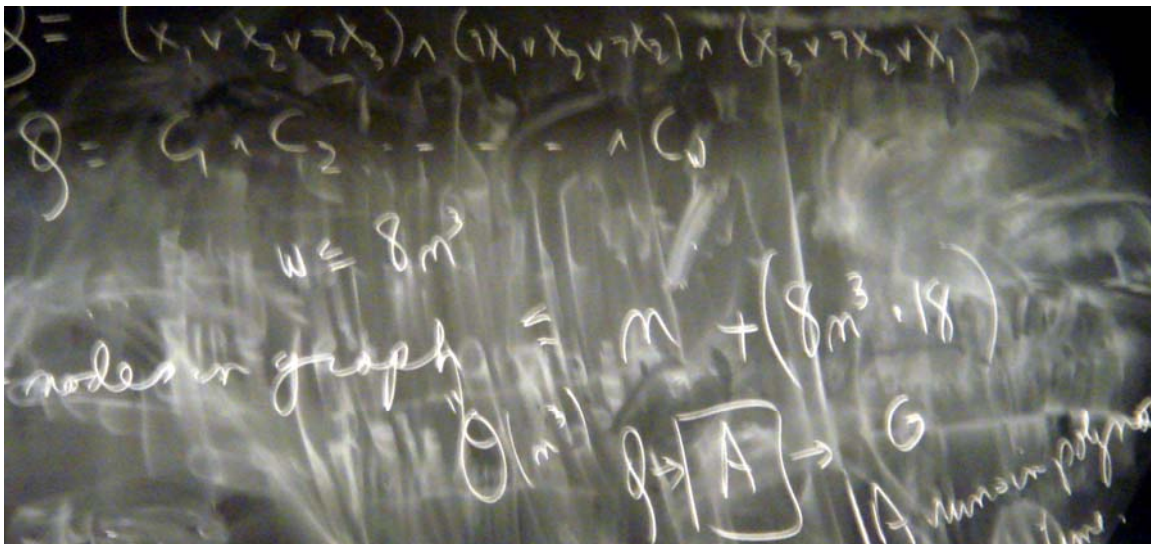 f = (x₁ ∨ x₂ ∨ ¬x₃) ∧ (¬x₁ ∨ x₂ ∨ ¬x₂) ∧ (x₃ ∨ ¬x₂ ∨ x₁)
f = C₁ ∧ C₂ - - - - ∧ C_w
w ≤ 8n³
nodes in graph ≤ n + (8n³ · 18)
" O(n³)
f → A → G
A runs in polyno
time.